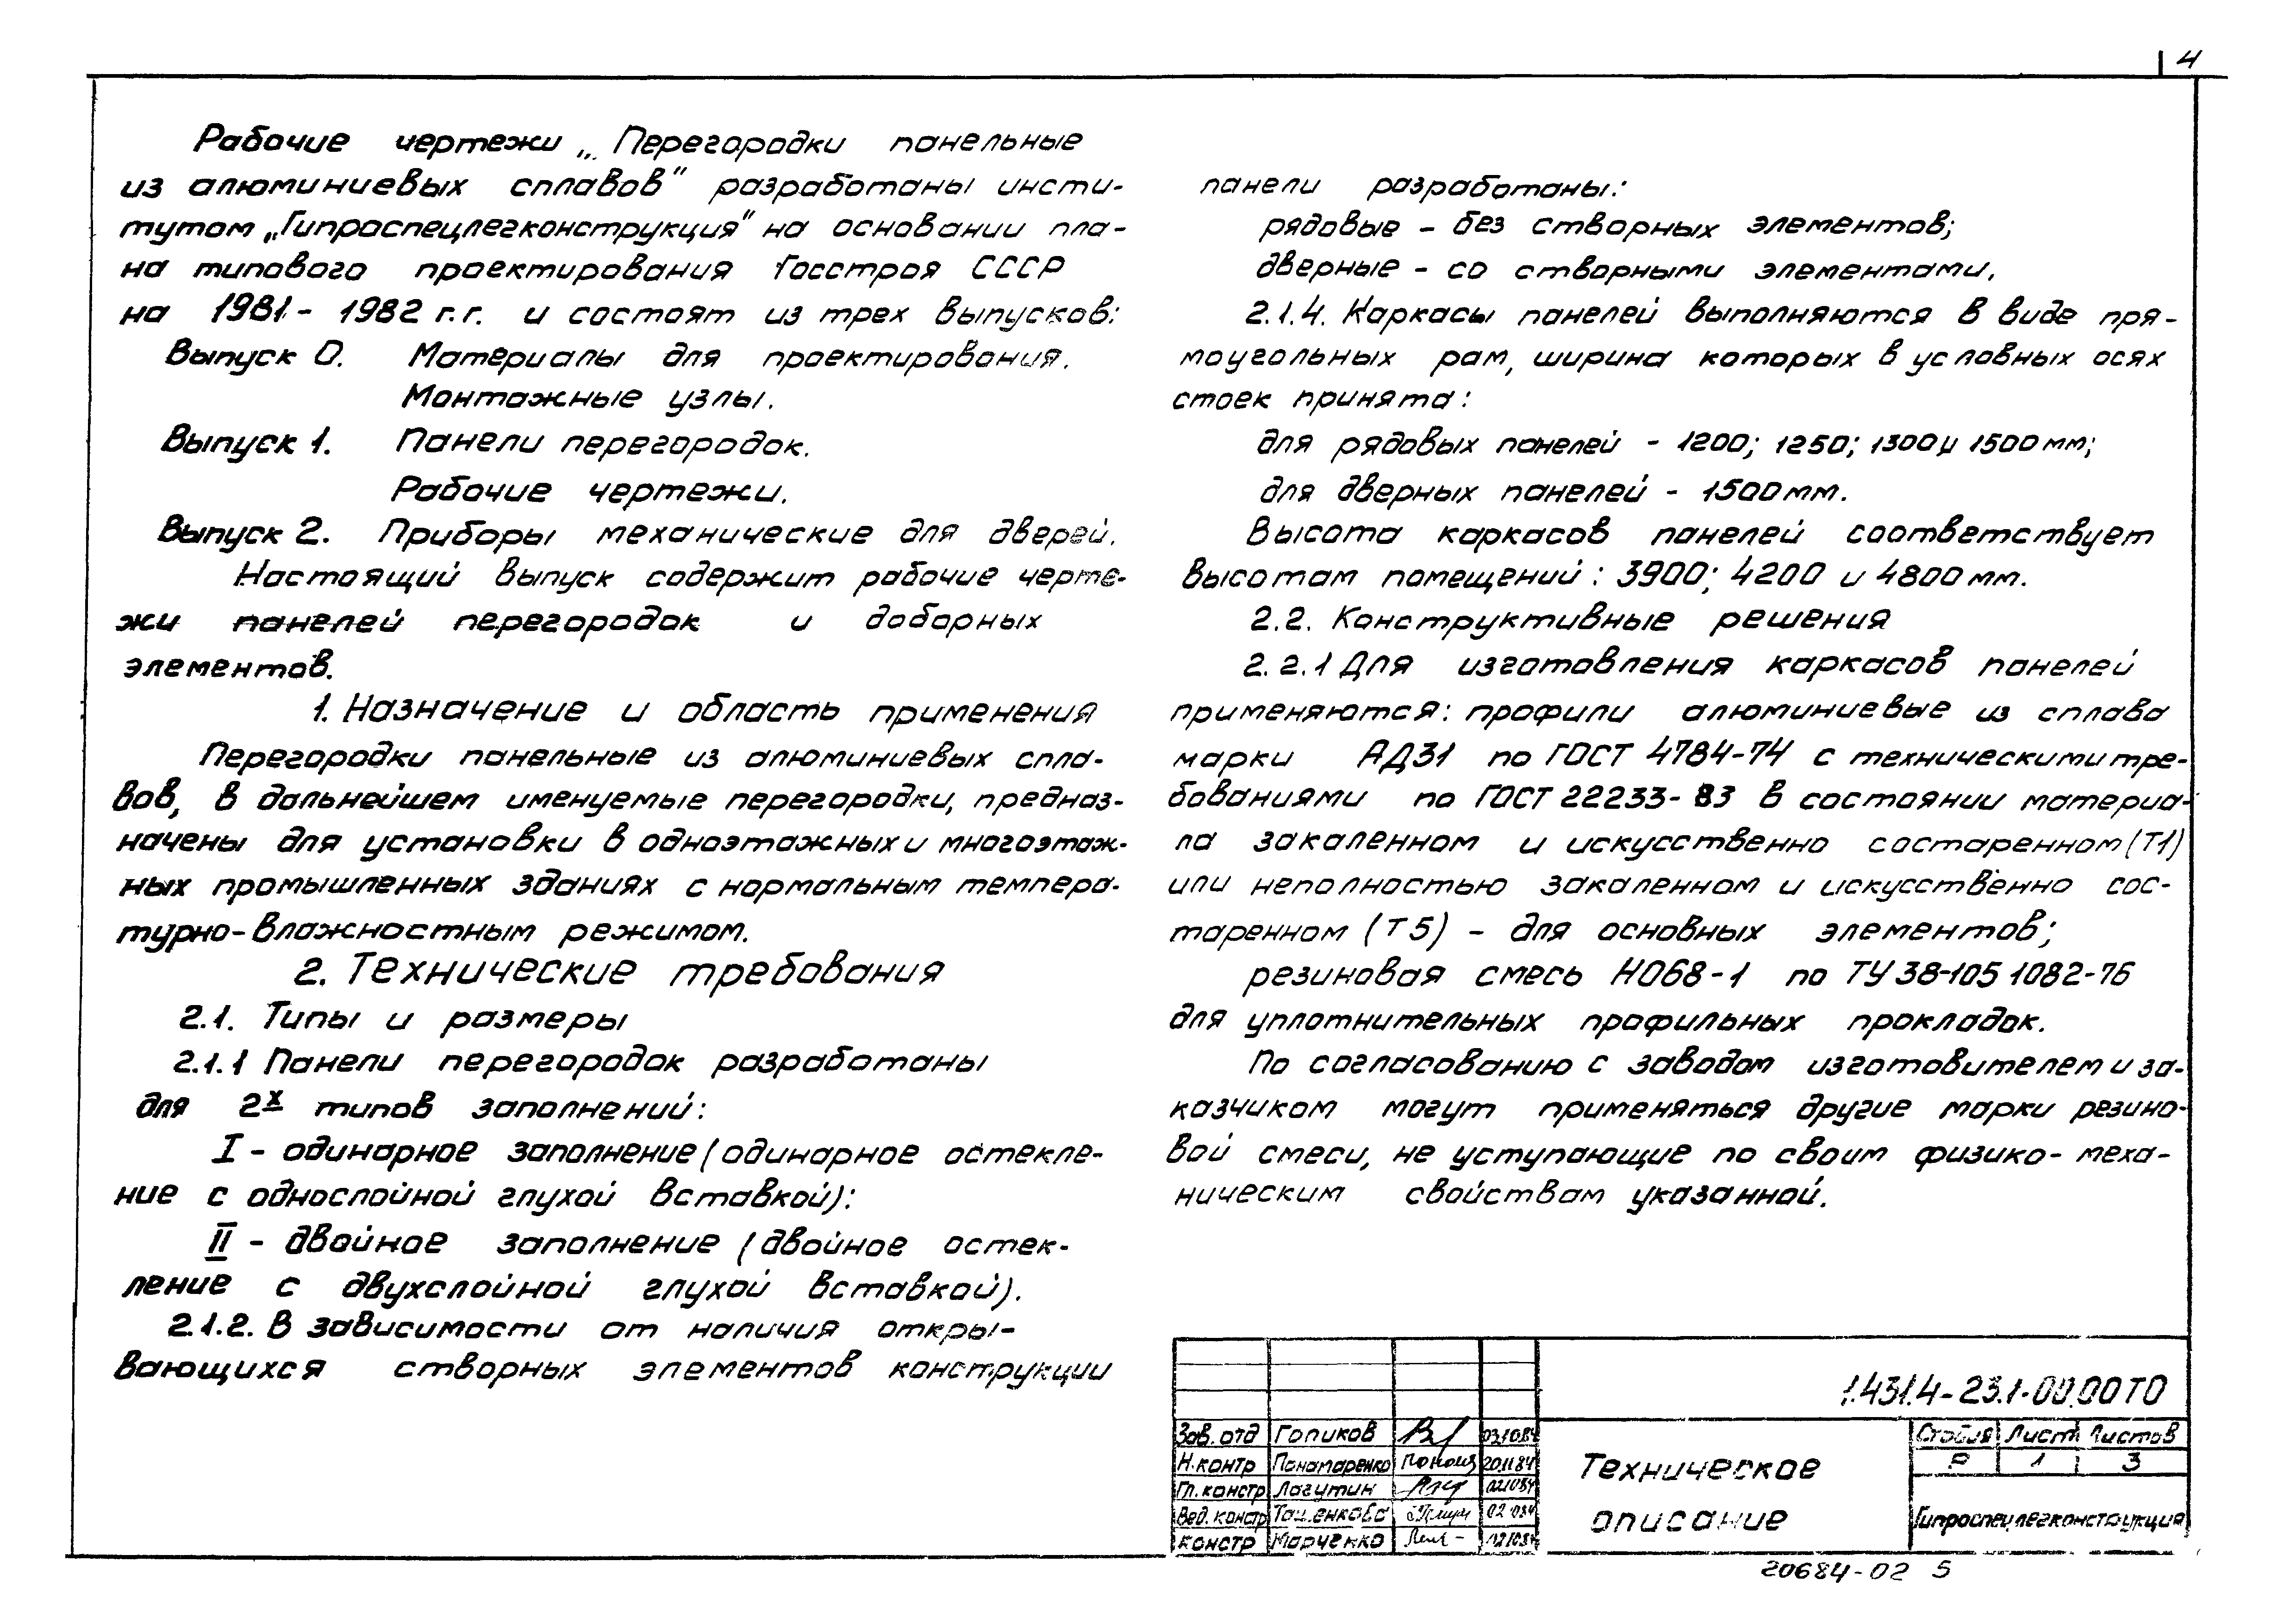 4
Рабочие чертежи „Перегородки панельные
из алюминиевых сплавов" разработаны инсти-
тутом „Гипроспецлегконструкция" на основании пла-
на типового проектирования Госстроя СССР
на 1981- 1982 г.г. и состоят из трех выпусков:
Выпуск 0. Материалы для проектирования.
Монтажные узлы.
Выпуск 1. Панели перегородок.
Рабочие чертежи.
Выпуск 2. Приборы механические для дверей.
Настоящий выпуск содержит рабочие черте-
жи панелей перегородок и доборных
элементов.
1. Назначение и область применения
Перегородки панельные из алюминиевых спла-
вов, в дальнейшем именуемые перегородки, предназ-
начены для установки в одноэтажных и многоэтаж-
ных промышленных зданиях с нормальным темпера-
турно-влажностным режимом.
2. Технические требования
2.1. Типы и размеры
2.1.1 Панели перегородок разработаны
для 2х типов заполнений:
I - одинарное заполнение (одинарное остекле-
ние с однослойной глухой вставкой):
II - двойное заполнение (двойное остек-
ление с двухслойной глухой вставкой).
2.1.2. В зависимости от наличия откры-
вающихся створных элементов конструкции
панели разработаны:
рядовые - без створных элементов;
дверные - со створными элементами.
2.1.4. Каркасы панелей выполняются в виде пря-
моугольных рам, ширина которых в условных осях
стоек принята:
для рядовых панелей - 1200; 1250; 1300 и 1500 мм;
для дверных панелей - 1500 мм.
Высота каркасов панелей соответствует
высотам помещений: 3900; 4200 и 4800 мм.
2.2. Конструктивные решения
2.2.1 Для изготовления каркасов панелей
применяются: профили алюминиевые из сплава
марки АД31 по ГОСТ 4784-74 с техническими тре-
бованиями по ГОСТ 22233-83 в состоянии материа-
ла закаленном и искусственно состаренном (Т1)
или неполностью закаленном и искусственно сос-
таренном (Т5) - для основных элементов;
резиновая смесь НО68-1 по ТУ 38-105 1082-76
для уплотнительных профильных прокладок.
По согласованию с заводом изготовителем и за-
казчиком могут применяться другие марки резино-
вой смеси, не уступающие по своим физико-меха-
ническим свойствам указанной.
1.431.4-23.1-00.00 ТО
Зав. отд Голиков 03.10.84
Н.контр Понамаренко 20.11.84
Гл. констр Лагутин 02.10.84
Вед. констр 02.10.84
Констр Марченко 02.10.84
Техническое
описание
Стадия Лист Листов
Р 1 3
Гипроспецлегконструкция
20684-02 5